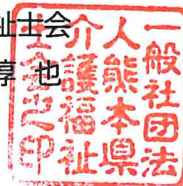 祉士会
也
一般社団法
人熊本県
介護福祉
士会之印